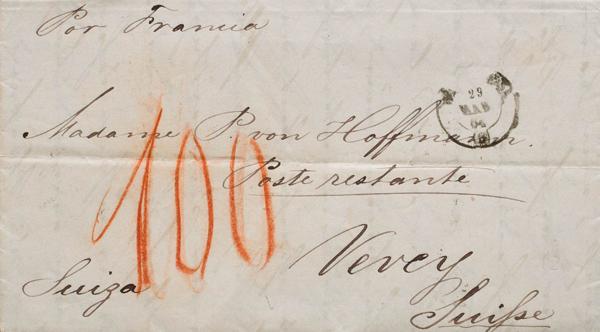 Por Francia
29
MAR
Madame P. von Hoffmann.
Poste restante
100
Vevey
Suiza
Suiſse